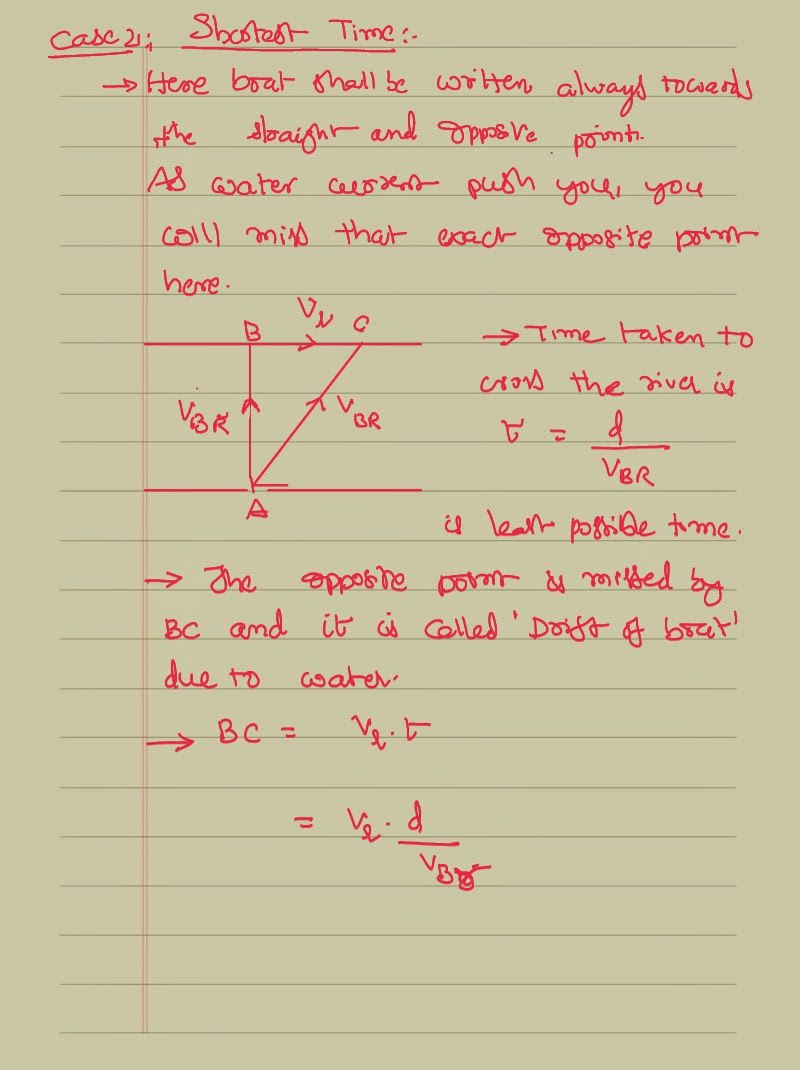 Case 2: Shortest Time:-
→ Here boat shall be written always towards
the straight and opposite point.
As water current push you, you
will miss that exact opposite point
here.
B Vr C
→ Time taken to
cross the river is
VBR VBR
t = d / VBR
A
is least possible time.
→ The opposite point is missed by
BC and it is called 'Drift of boat'
due to water.
→ BC = Vr . t
= Vr . d / VBR